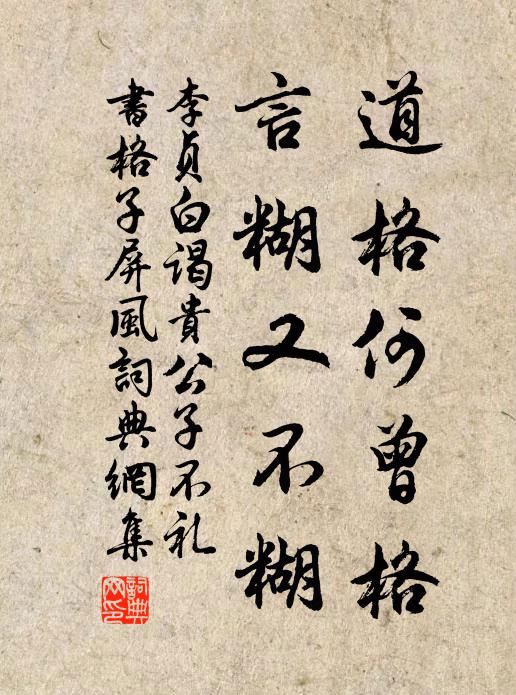 道格何曾格
言糊又不糊
李貞白謁貴公子不礼
書格子屏風詞典網集
詞典网印